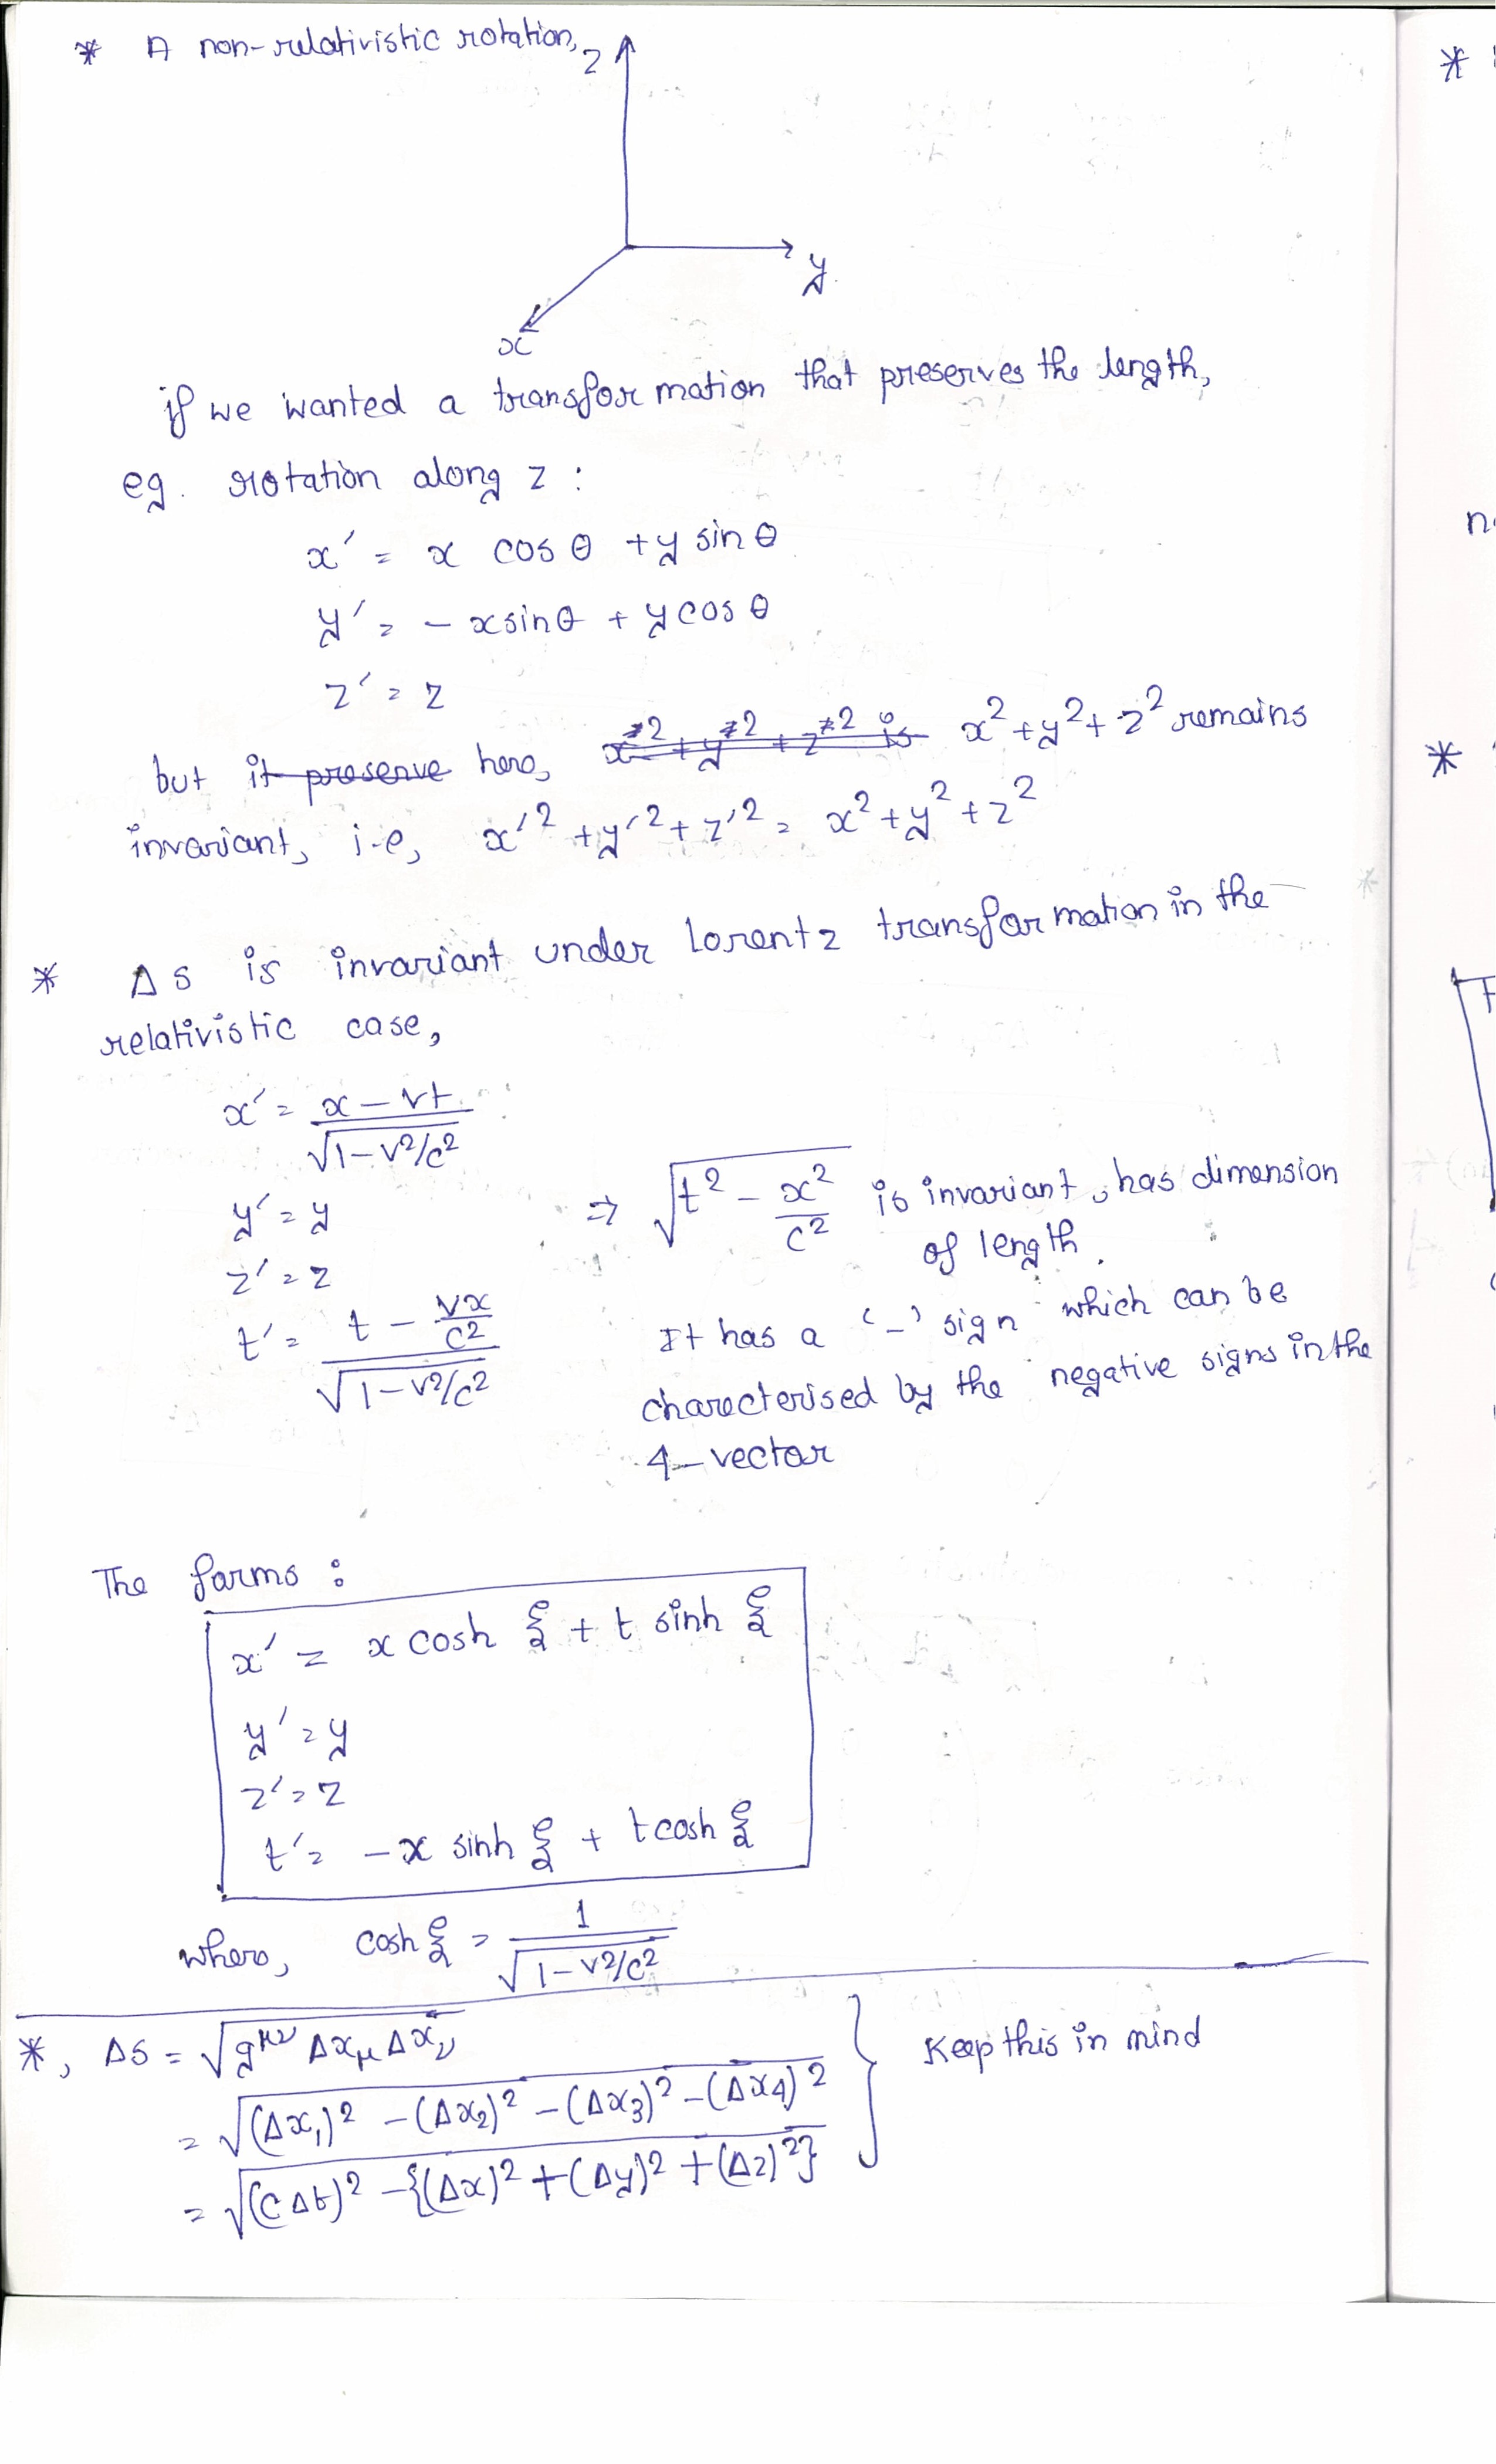 * A non-relativistic rotation,
z
y
x
if we wanted a transformation that preserves the length,
eg. rotation along z :
x' = x cos θ + y sin θ
y' = - x sin θ + y cos θ
z' = z
but it preserve here, x'² + y'² + z'² is x² + y² + z² remains
invariant, i.e, x'² + y'² + z'² = x² + y² + z²
* Δs is invariant under Lorentz transformation in the
relativistic case,
x' = (x - vt) / √(1 - v²/c²)
y' = y
z' = z
t' = (t - vx/c²) / √(1 - v²/c²)
⇒ √(t² - x²/c²) is invariant, has dimension
of length.
It has a '-' sign which can be
charecterised by the negative signs in the
4-vector
The forms :
x' = x cosh ξ + t sinh ξ
y' = y
z' = z
t' = - x sinh ξ + t cosh ξ
where, cosh ξ = 1 / √(1 - v²/c²)
*, Δs = √(g^μν Δx_μ Δx_ν)
= √((Δx₁)² - (Δx₂)² - (Δx₃)² - (Δx₄)²)
= √((cΔt)² - {(Δx)² + (Δy)² + (Δz)²})
Keep this in mind
*
n
*
F